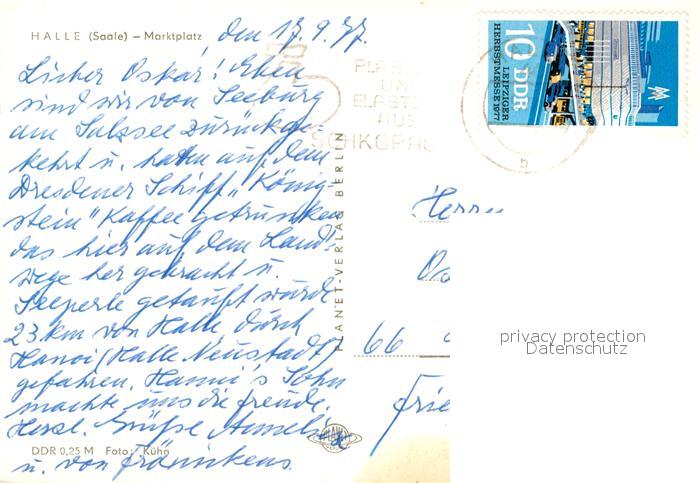 HALLE (Saale) – Marktplatz
den 17.9.77.
Lieber Oskar! Eben
sind wir von Seeburg
am Salzsee zurückge-
kehrt u. hatten auf dem
Dresdener Schiff „König-
stein" Kaffee getrunken
das hier auf dem Land-
wege her gebracht u.
Seeperle getauft wurde
23 km von Halle durch
Hanoi (Halle Neustadt)
gefahren. Hanni's Sohn
machte uns die Freude.
Herzl. Grüße Annelie
u. von
DDR 0,25 M Foto: Kühn
PLANET-VERLAG BERLIN
PLANET
PLASTE
UND
ELASTE
AUS
SCHKOPAU
10 DDR
LEIPZIGER
HERBSTMESSE 1977
b
Herrn
Os
66
Frie
privacy protection
Datenschutz